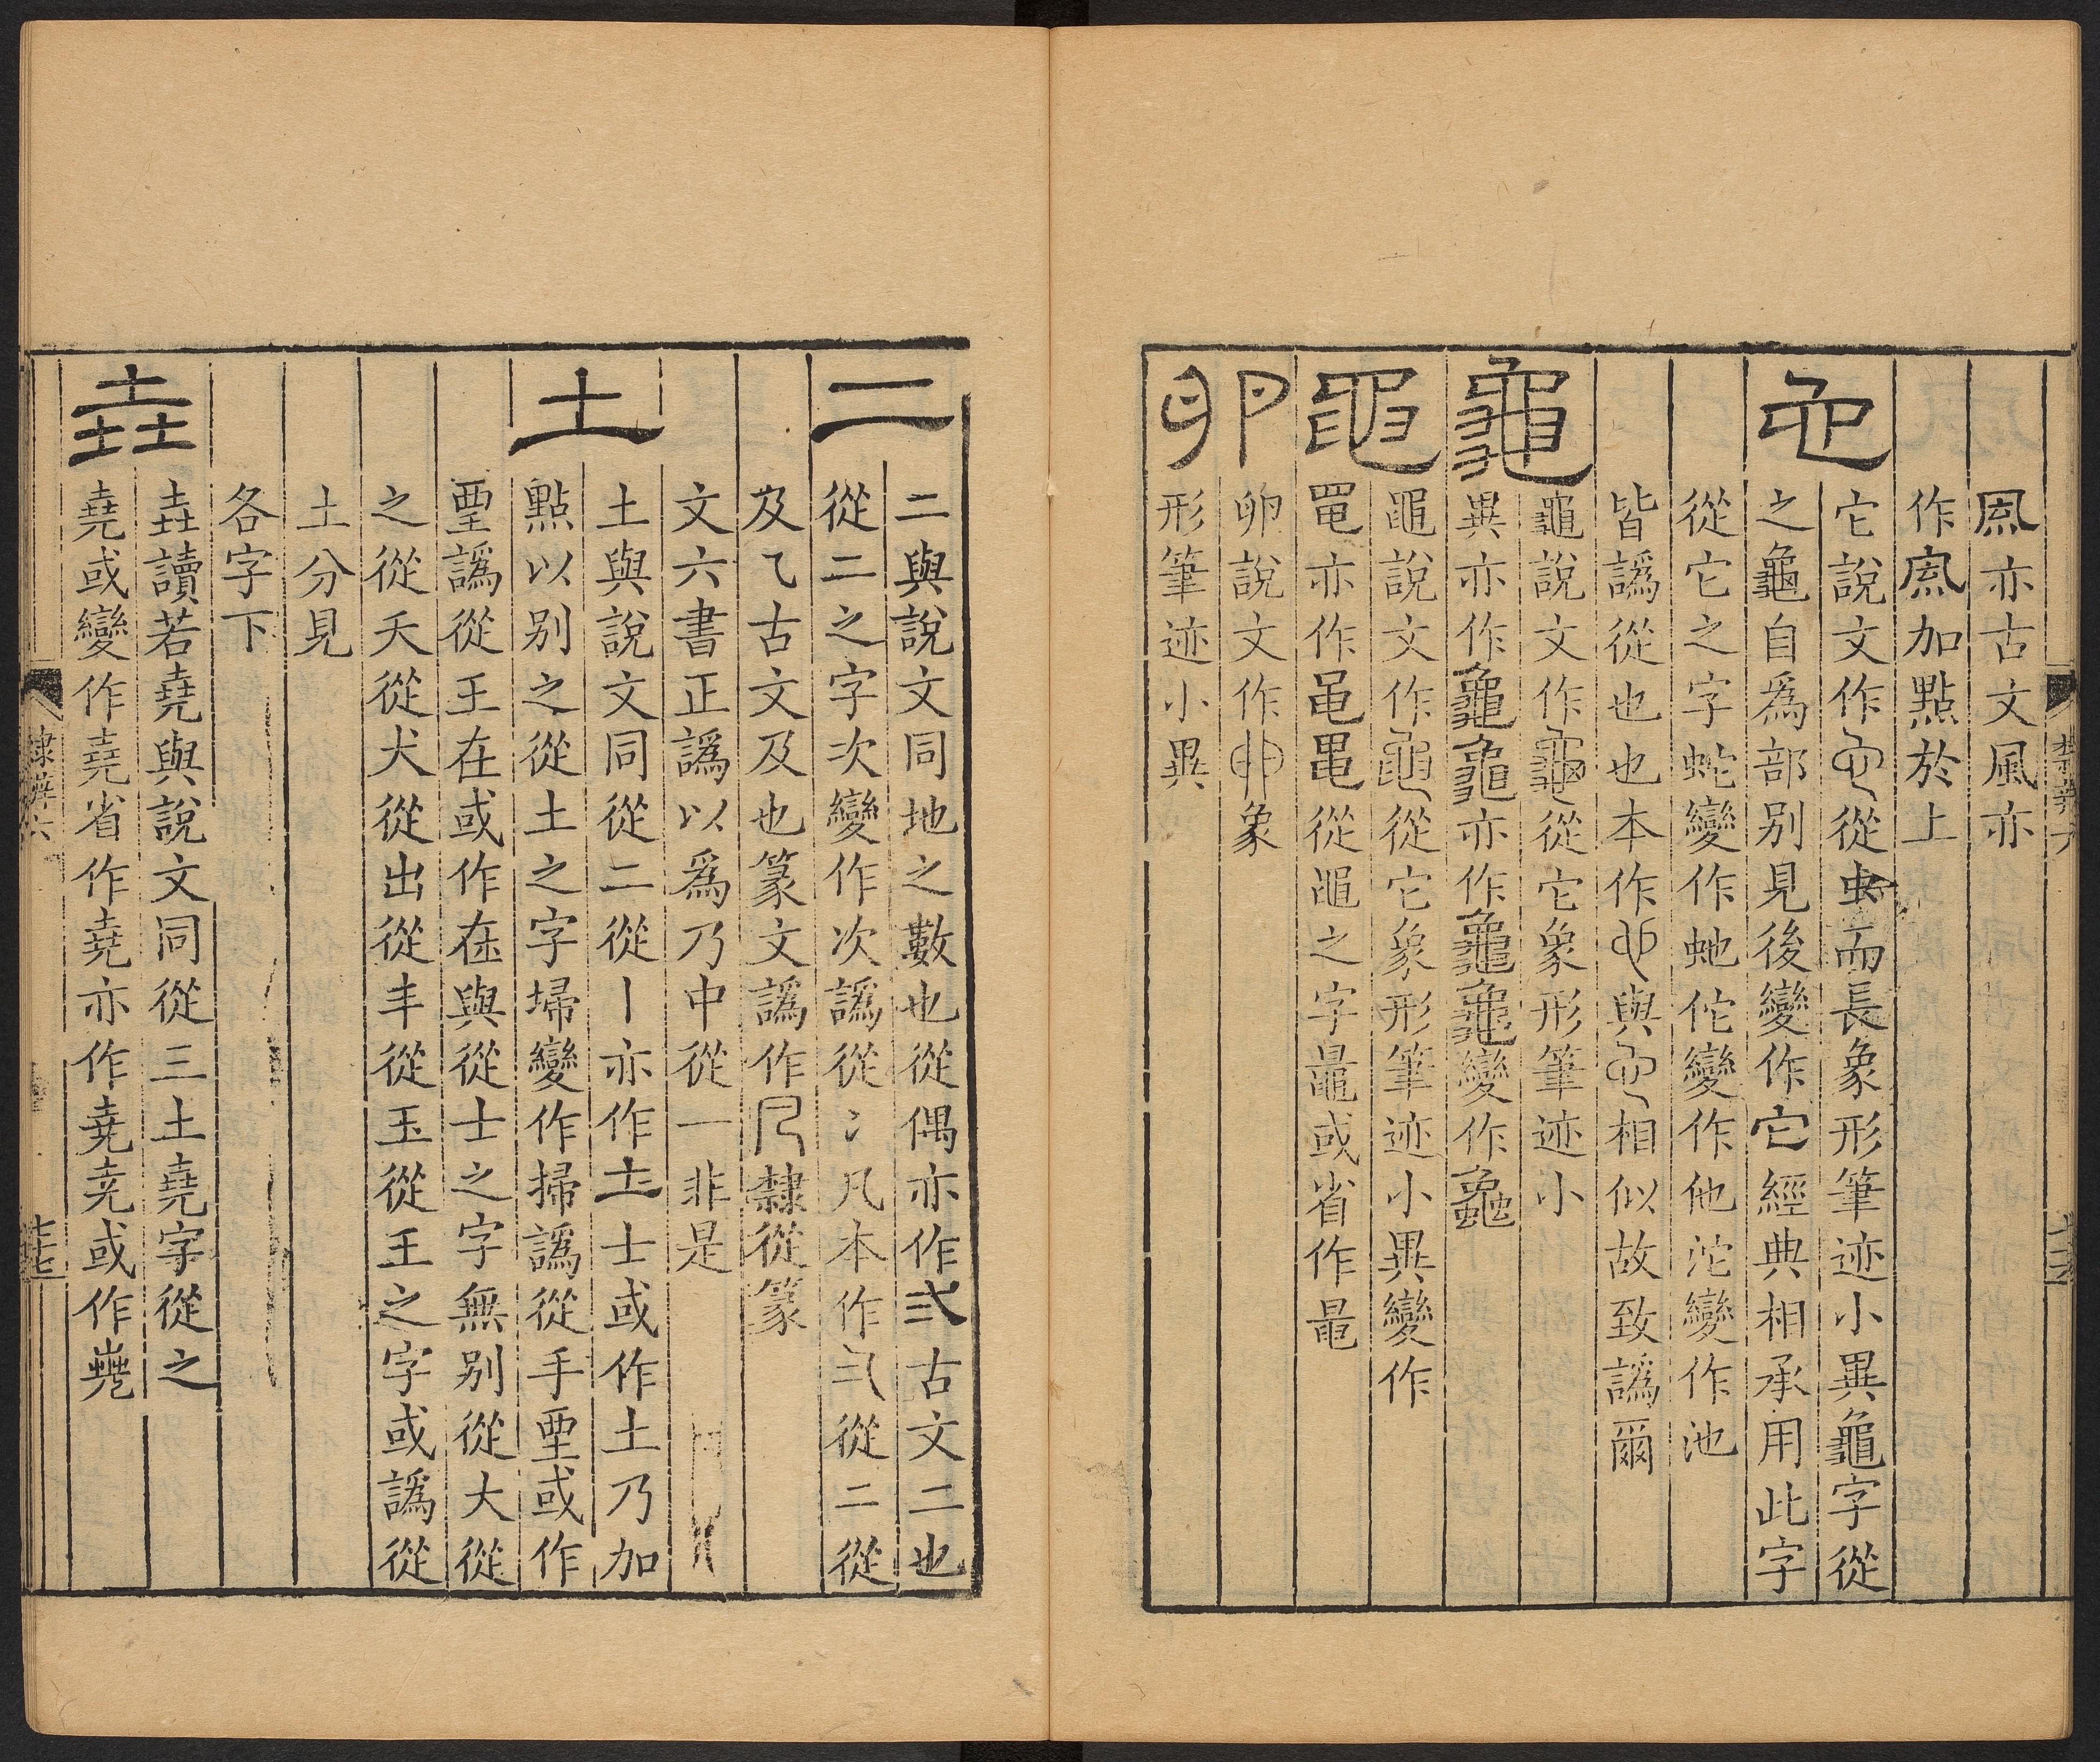 凬亦古文風亦
作凮加點於上
它
它說文作從虫而長象形筆迹小異龜字從
之龜自爲部别見後變作它經典相承用此字
從它之字蛇變作虵佗變作他沱變作池
皆譌從也也本作與相似故致譌爾
龜
龜說文作從它象形筆迹小
異亦作龜龜亦作龜龜變作
黽
黽說文作從它象形筆迹小異變作
黾亦作從黽之字鼂或省作
卵
卵說文作象
形筆迹小異
二
二與說文同地之數也從偶亦作弍古文二也
從二之字次變作次譌從冫凡本作從二從
及乁古文及也篆文譌作隸從篆
文六書正譌以爲乃中從一非是
土
土與說文同從二從丨亦作土士或作土乃加
點以别之從土之字埽變作掃譌從手垔或作
譌從王在或作在與從士之字無别從大從
之從夭從犬從出從丰從玉從王之字或譌從
土分見
各字下
垚
垚讀若堯與說文同從三土堯字從之
堯或變作堯省作尭亦作尭尭或作
隸辨六